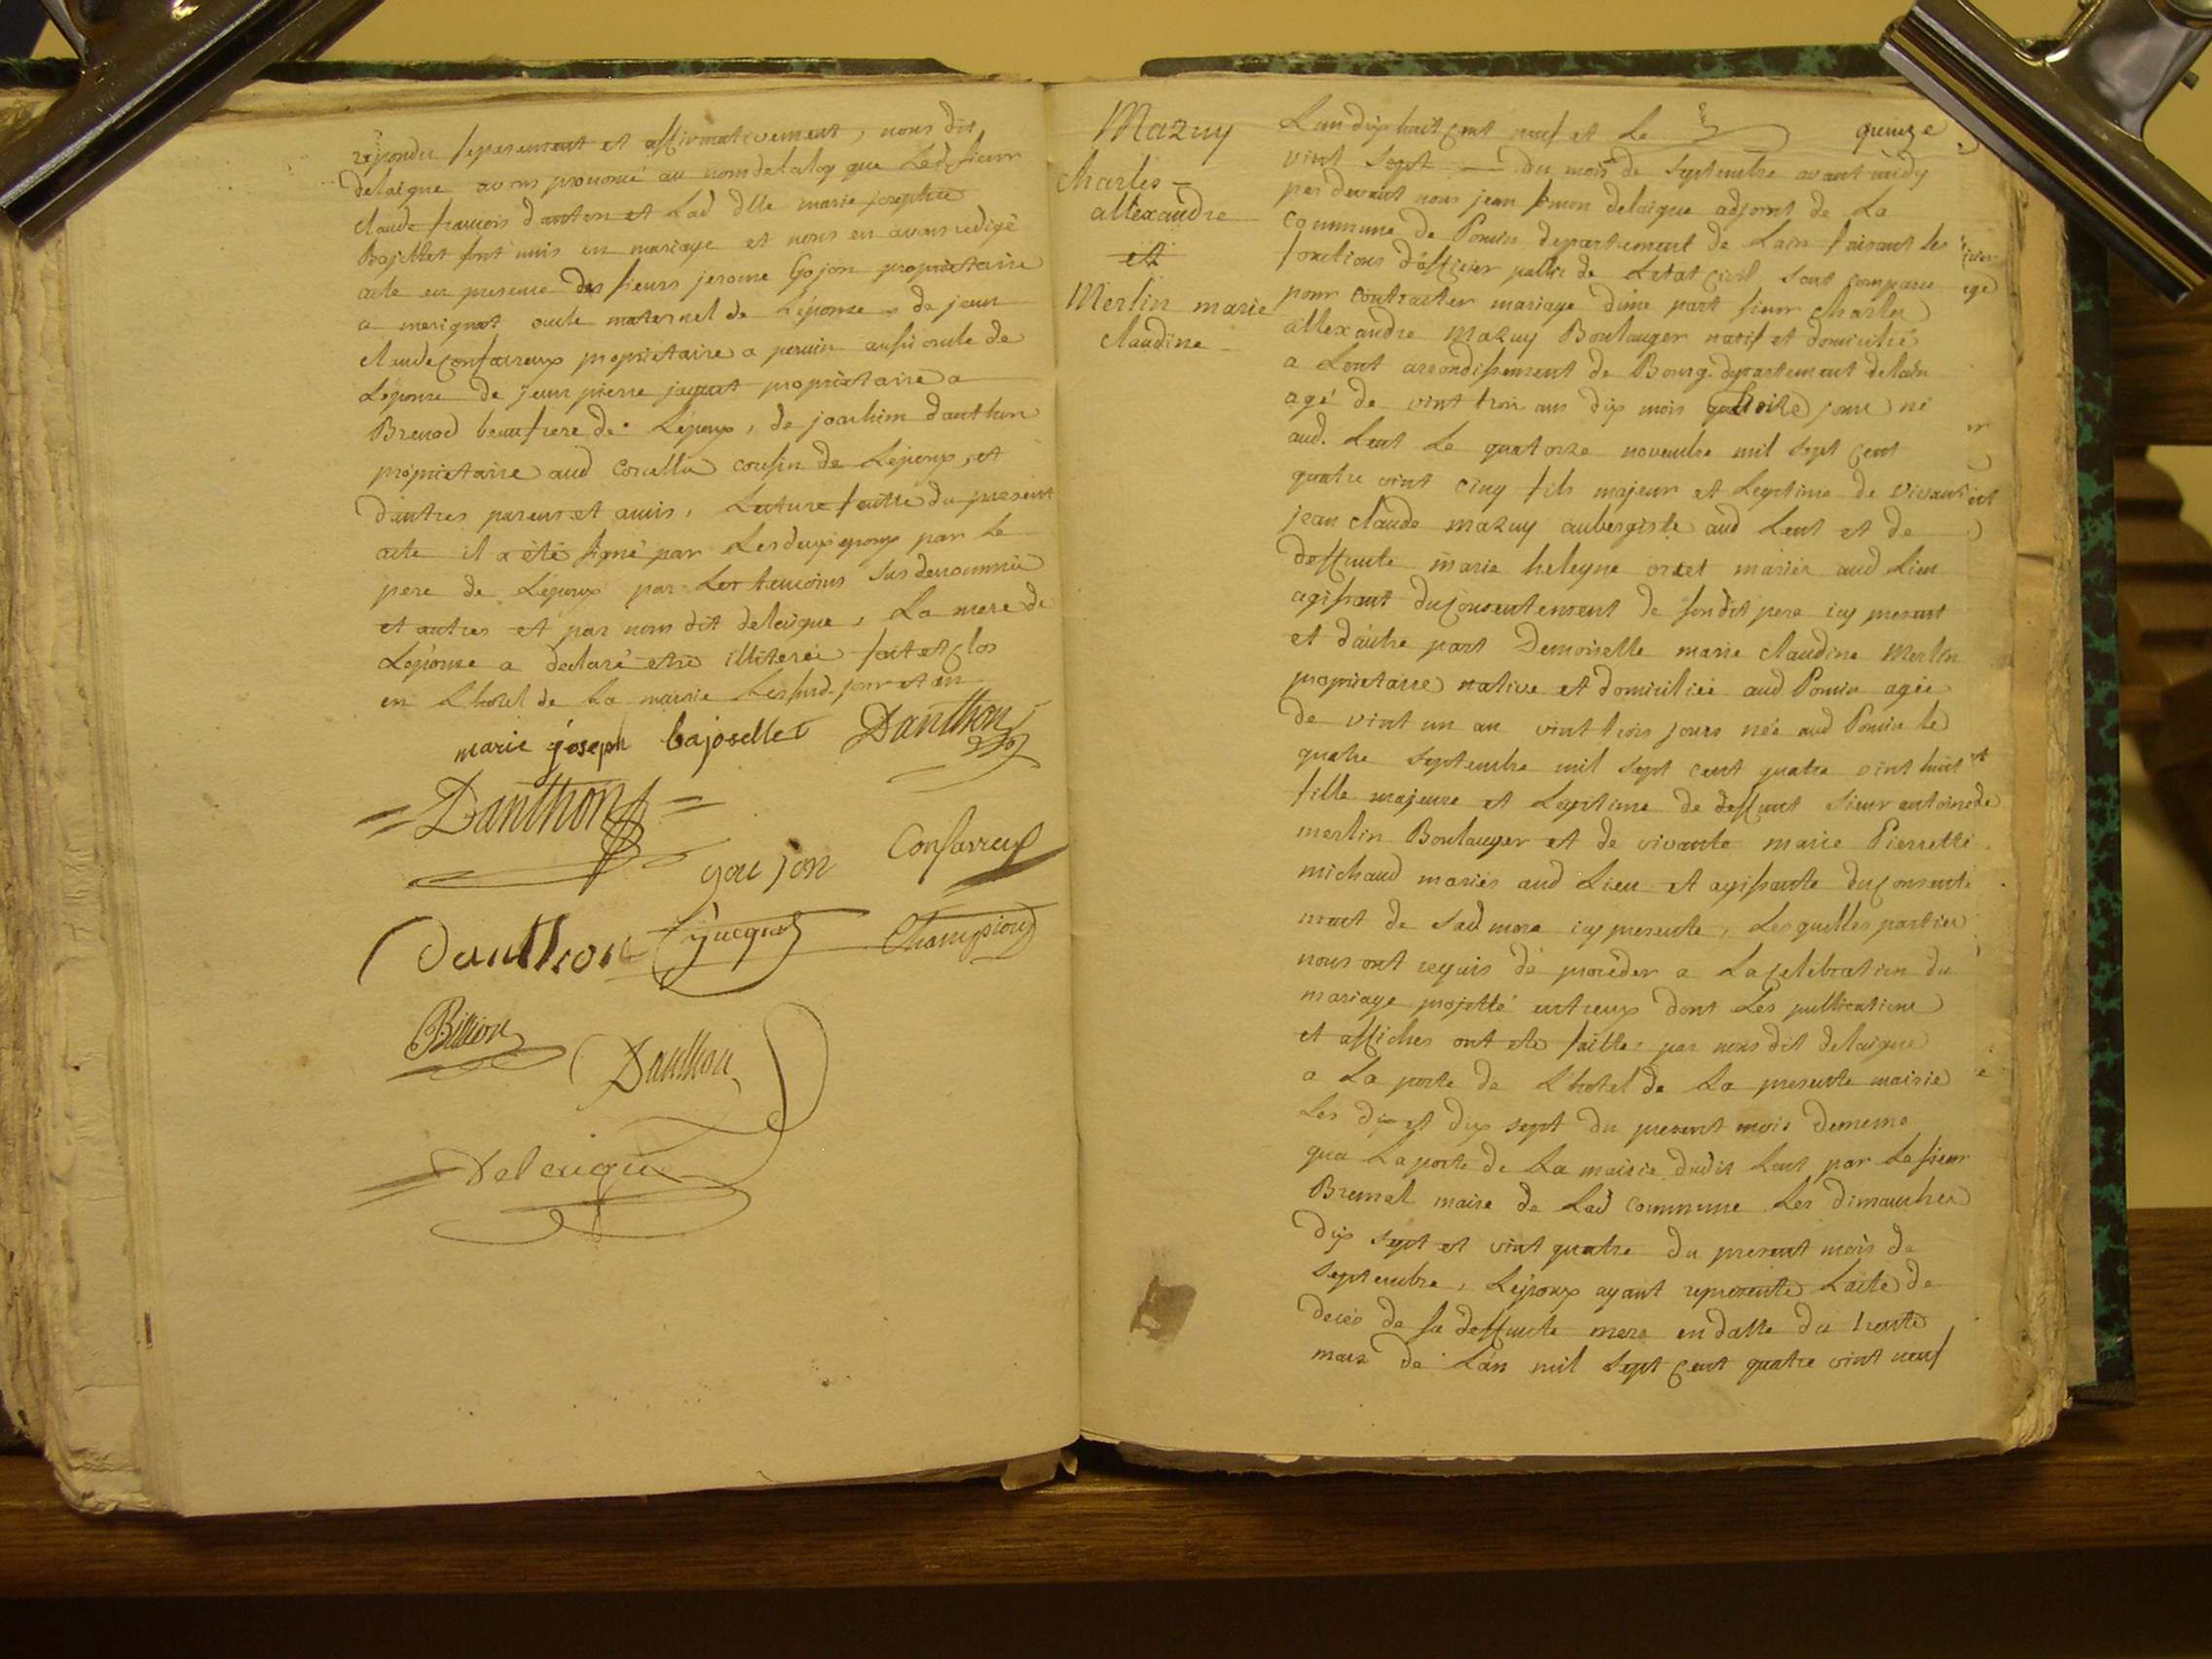 repondu separement et affirmativement, nous dit
delaigue avons prononcé au nom de la loy que Led. sieur
claude francois danton et Lad dlle marie josephte
Bajollet sont unis en mariage et nous en avons redigé
acte en presence des sieurs jerome Gojon proprietaire
a merignat oncle maternel de L'épouse, de jean
claude Confavreux proprietaire a poncin aussi oncle de
L'épouse de jean pierre jaquat proprietaire a
Brenod beaufrere de L'époux, de joachim danthon
proprietaire aud Corcelle cousin de L'époux, et
d'autres parens et amis, Lecture faitte du present
acte il a été signé par Les deux epoux par le
pere de L'époux par Les temoins sus denommés
et autres et par nous dit delaigue, La mere de
L'épouse a declaré etre illiterée fait et clos
en L'hotel de La mairie Les susd. jour et an
marie joseph bajoselle Danthon
Danthon
goujon Confavreux
Danthon jacquet Champion
Billion
Danthon
Delaigue
Mazuy
charles
allexandre
et
Merlin marie
claudine
L'an dix huit cent neuf et Le quinze
vint sept du mois de septembre avant midy
par devant nous jean simon delaigue adjoint de La
commune de Poncin departement de L'ain faisant les
fonctions d'officier public de L'etat civil sont comparu
pour contracter mariage d'une part sieur charles
allexandre Mazuy Boulanger natif et domicilié
a Lent arrondissement de Bourg departement de lain
agé de vint trois ans dix mois quatorze jour né
aud. Lent le quatorze novembre mil sept cent
quatre vint cinq fils majeur et Legitime de vivant
jean claude mazuy aubergiste aud Lent et de
deffunte marie heleyne ortet mariés aud Lieu
agissant du consentement de son dit pere icy present
et d'autre part Demoiselle marie claudine Merlin
proprietaire native et domiciliée aud Poncin agée
de vint un an vint trois jours née aud Poncin le
quatre septembre mil sept cent quatre vint huit
fille majeure et Legitime de deffunt sieur antoine
merlin Boulanger et de vivante marie Pierrette
michaud mariés aud Lieu et agissante du consente
ment de sad mere icy presente, Lesquelles parties
nous ont requis de proceder a La celebration du
mariage projetté entreux dont Les publications
et affiches ont ete faittes par nous dit delaigue
a La porte de L'hotel de La presente mairie
Les dix et dix sept du present mois dememe
qua La porte de La mairie dudit Lent par Le sieur
Brunet maire de Lad commune Les dimanches
dix sept et vint quatre du present mois de
septembre, L'époux ayant representé L'acte de
deces de sa deffunte mere en datte du trente
mars de L'an mil sept cent quatre vint neuf